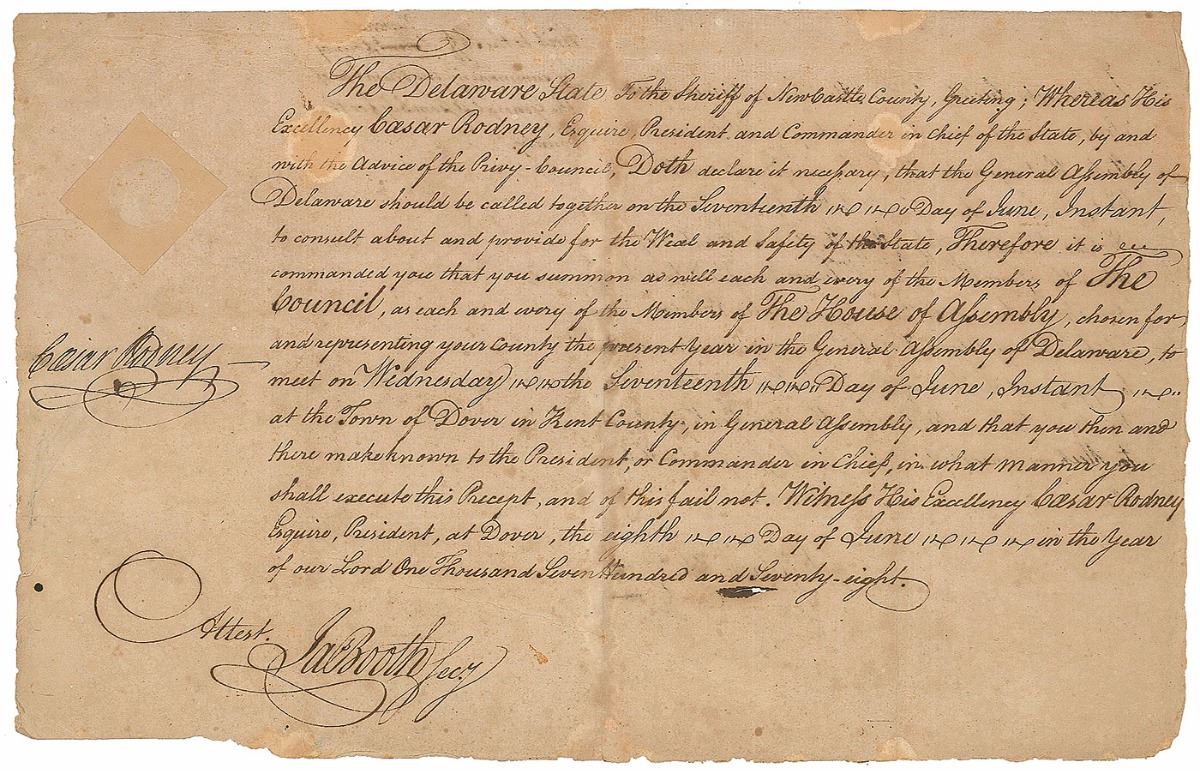 The Delaware State To the Sheriff of New Castle County, Greeting; Whereas His
Excellency Cæsar Rodney, Esquire, President and Commander in Chief of the State, by and
with the Advice of the Privy-Council, Doth declare it necessary, that the General Assembly of
Delaware should be called together on the Seventeenth Day of June, Instant,
to consult about and provide for the Weal and Safety of the State, Therefore it is
commanded you that you summon as well each and every of the Members of The
Council, as each and every of the Members of The House of Assembly, chosen for
and representing your County the present Year in the General Assembly of Delaware, to
meet on Wednesday the Seventeenth Day of June, Instant
at the Town of Dover in Kent County, in General Assembly, and that you then and
there make known to the President, or Commander in Chief, in what manner you
shall execute this Precept, and of this fail not. Witness His Excellency Cæsar Rodney
Esquire, President, at Dover, the eighth Day of June in the Year
of our Lord One Thousand Seven Hundred and Seventy-eight.
Cæsar Rodney
Attest.
Jas Booth Secy